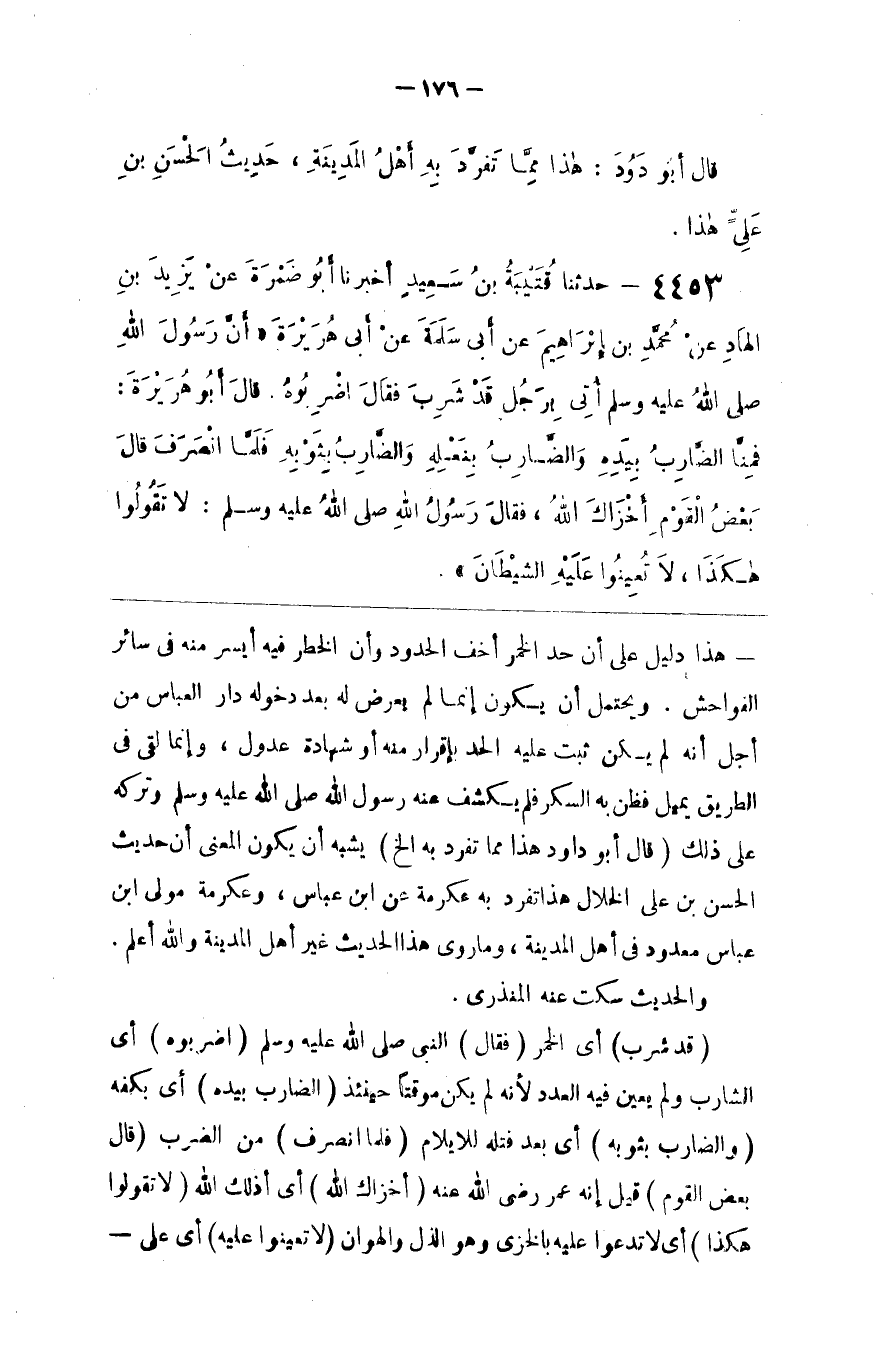 — ١٧٦ —
قال أبُو دَوُدَ : هٰذا مِمَّا تَفرَّدَ بِهِ أَهْلُ المَدِينَةِ ، حَدِيثُ الحْسَنِ بنِ
عَلِيٍّ هٰذا .
٤٤٥٣ — حدثنا قُتَيْبَةُ بنُ سَعِيدٍ أخبرنا أَبُو ضَمْرَةَ عنْ يَزِيدَ بنِ
الهَادِ عنْ مُحمَّدِ بن إِبْرَاهِيمَ عن أبى سَلَمَةَ عنْ أبى هُرَيْرَةَ « أنَّ رَسُولَ اللهِ
صلى اللهُ عليه وسلم أُتِىَ بِرَجُلٍ قَدْ شَرِبَ فقالَ اضْرِبُوهُ . قالَ أبُو هُرَيْرَةَ :
فمِنَّا الضَّارِبُ بِيَدِهِ وَالضَّارِبُ بِنَعْلِهِ وَالضَّارِبُ بِثَوْبِهِ فَلَمَّا انْصَرَفَ قالَ
بَعْضُ الْقَوْمِ أَخْزَاكَ اللهُ ، فقالَ رَسُولُ اللهِ صلى اللهُ عليه وسلم : لا تَقُولُوا
هٰكَذَا ، لاَ تُعِينُوا عَلَيْهِ الشيْطَانَ » .
— هذا دليل على أن حد الخمر أخف الحدود وأن الخطر فيه أيسر منه فى سائر
الفواحش . ويحتمل أن يكون إنما لم يعرض له بعد دخوله دار العباس من
أجل أنه لم يكن ثبت عليه الحد بإقرار منه أو شهادة عدول ، وإنما لقى فى
الطريق يميل فظن به السكر فلم يكشف عنه رسول الله صلى الله عليه وسلم وتركه
على ذلك ( قال أبو داود هذا مما تفرد به الخ ) يشبه أن يكون المعنى أن حديث
الحسن بن على الخلال هذا تفرد به عكرمة عن ابن عباس ، وعكرمة مولى ابن
عباس معدود فى أهل المدينة ، وما روى هذا الحديث غير أهل المدينة والله أعلم .
والحديث سكت عنه المنذرى .
( قد شرب ) أى الخمر ( فقال ) النبى صلى الله عليه وسلم ( اضربوه ) أى
الشارب ولم يعين فيه العدد لأنه لم يكن موقتاً حينئذ ( الضارب بيده ) أى بكفه
( والضارب بثوبه ) أى بعد فتله للايلام ( فلما انصرف ) من الضرب ( قال
بعض القوم ) قيل إنه عمر رضى الله عنه ( أخزاك الله ) أى أذلك الله ( لا تقولوا
هكذا ) أى لا تدعوا عليه بالخزى وهو الذل والهوان ( لا تعينوا عليه ) أى على —